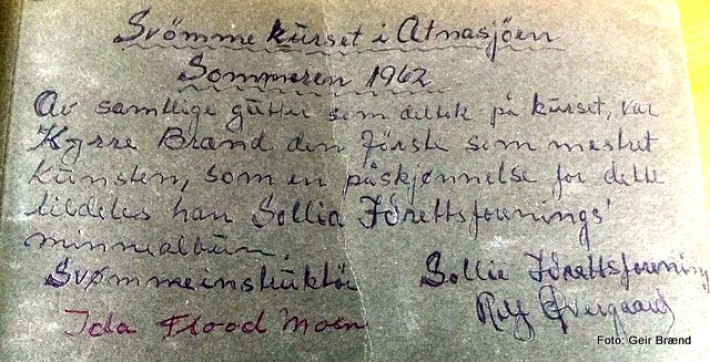 Svömmekurset i Atnasjöen
Sommeren 1962
Av samtlige gutter som deltok på kurset, var
Kyrre Brænd den förste som mestret
kunsten, som en påskjønnelse for dette
tildeles han Sollia Idrettsforenings'
minnealbum.
Svømmeinstruktör Sollia Idrettsforening
Ida Flood Moen Rolf Øvergaard
Foto: Geir Brænd